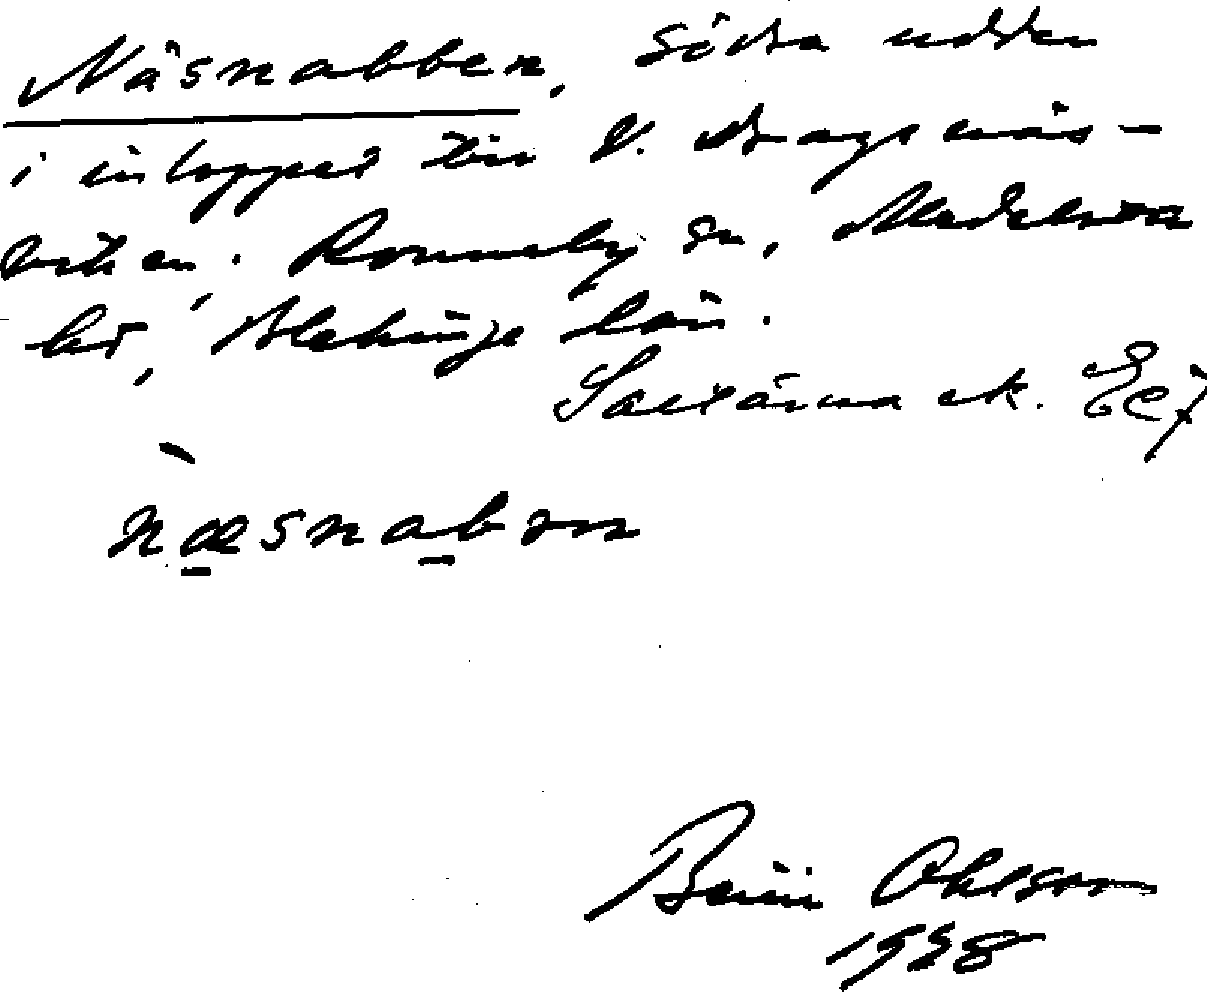 Näsnabben, Södra udden
i inloppet till V. Dragsnäs-
viken. Ronneby sn, Medelsta
hd, Blekinge län.
ek.
næsnabən
Ohlson
1958